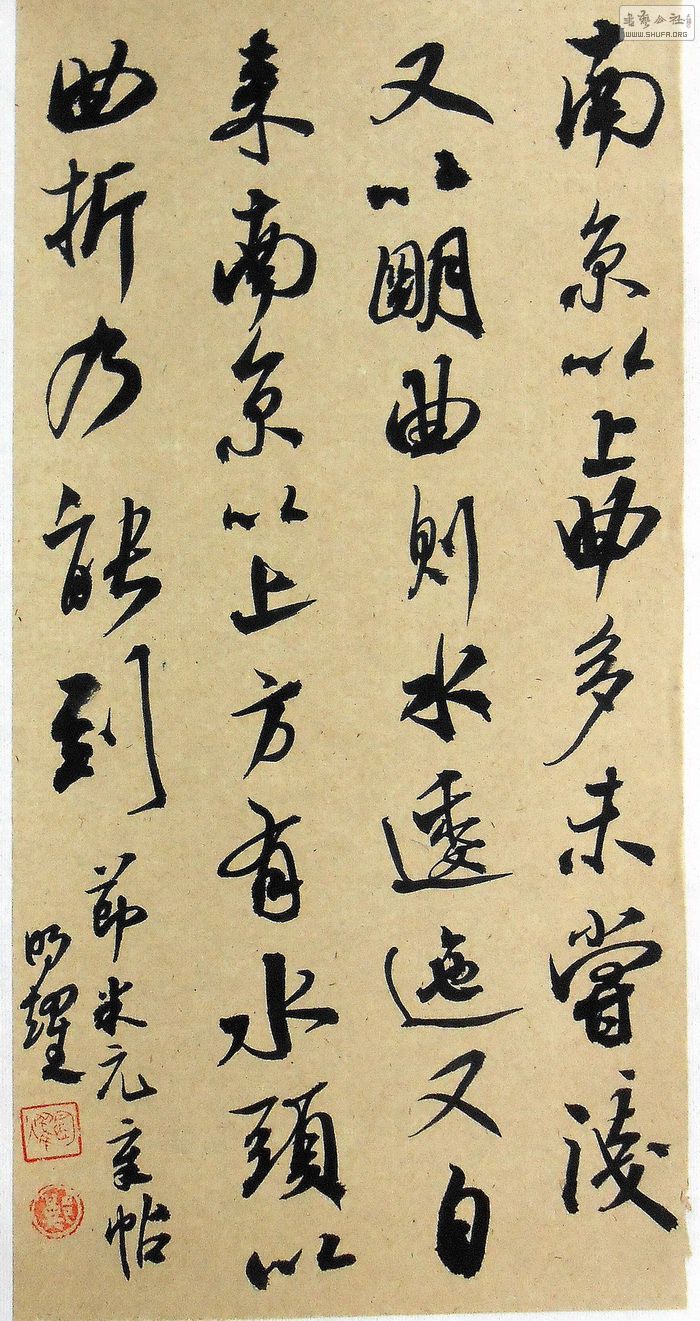 南京以上曲多未嘗淺
又以朙曲則水逶迤又自
来南京以上方有水頭以
曲折乃能到
節米元章帖
明耀
书艺公社
WWW.SHUFA.ORG